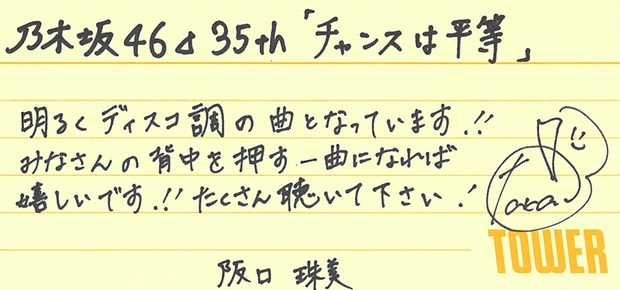 乃木坂46 35th「チャンスは平等」
明るくディスコ調の曲となっています!!
みなさんの背中を押す一曲になれば
嬉しいです!!たくさん聴いて下さい!
阪口 珠美
TOWER